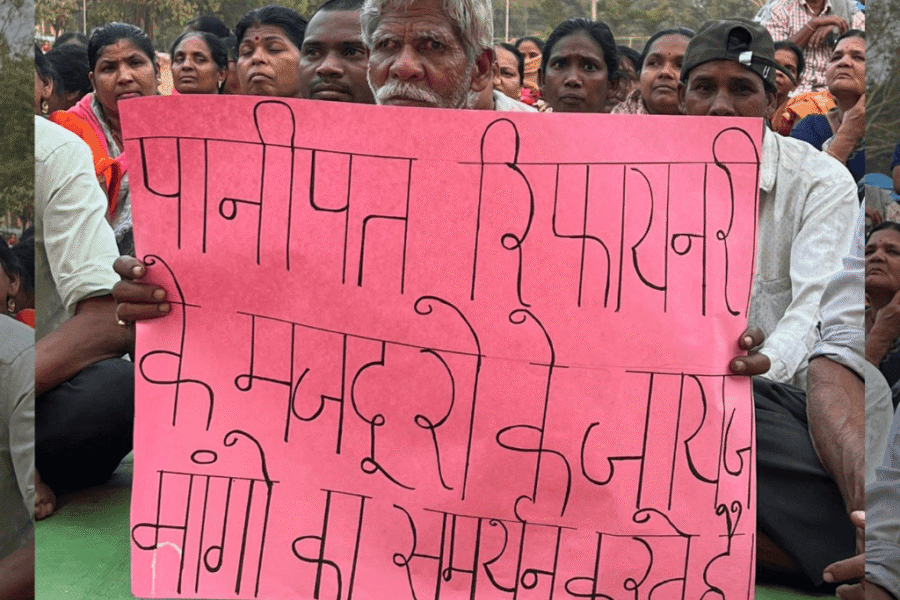 पानीपत रिफायनरी
के मजदूरो के जायज
मांगो का समर्थन करते हैं